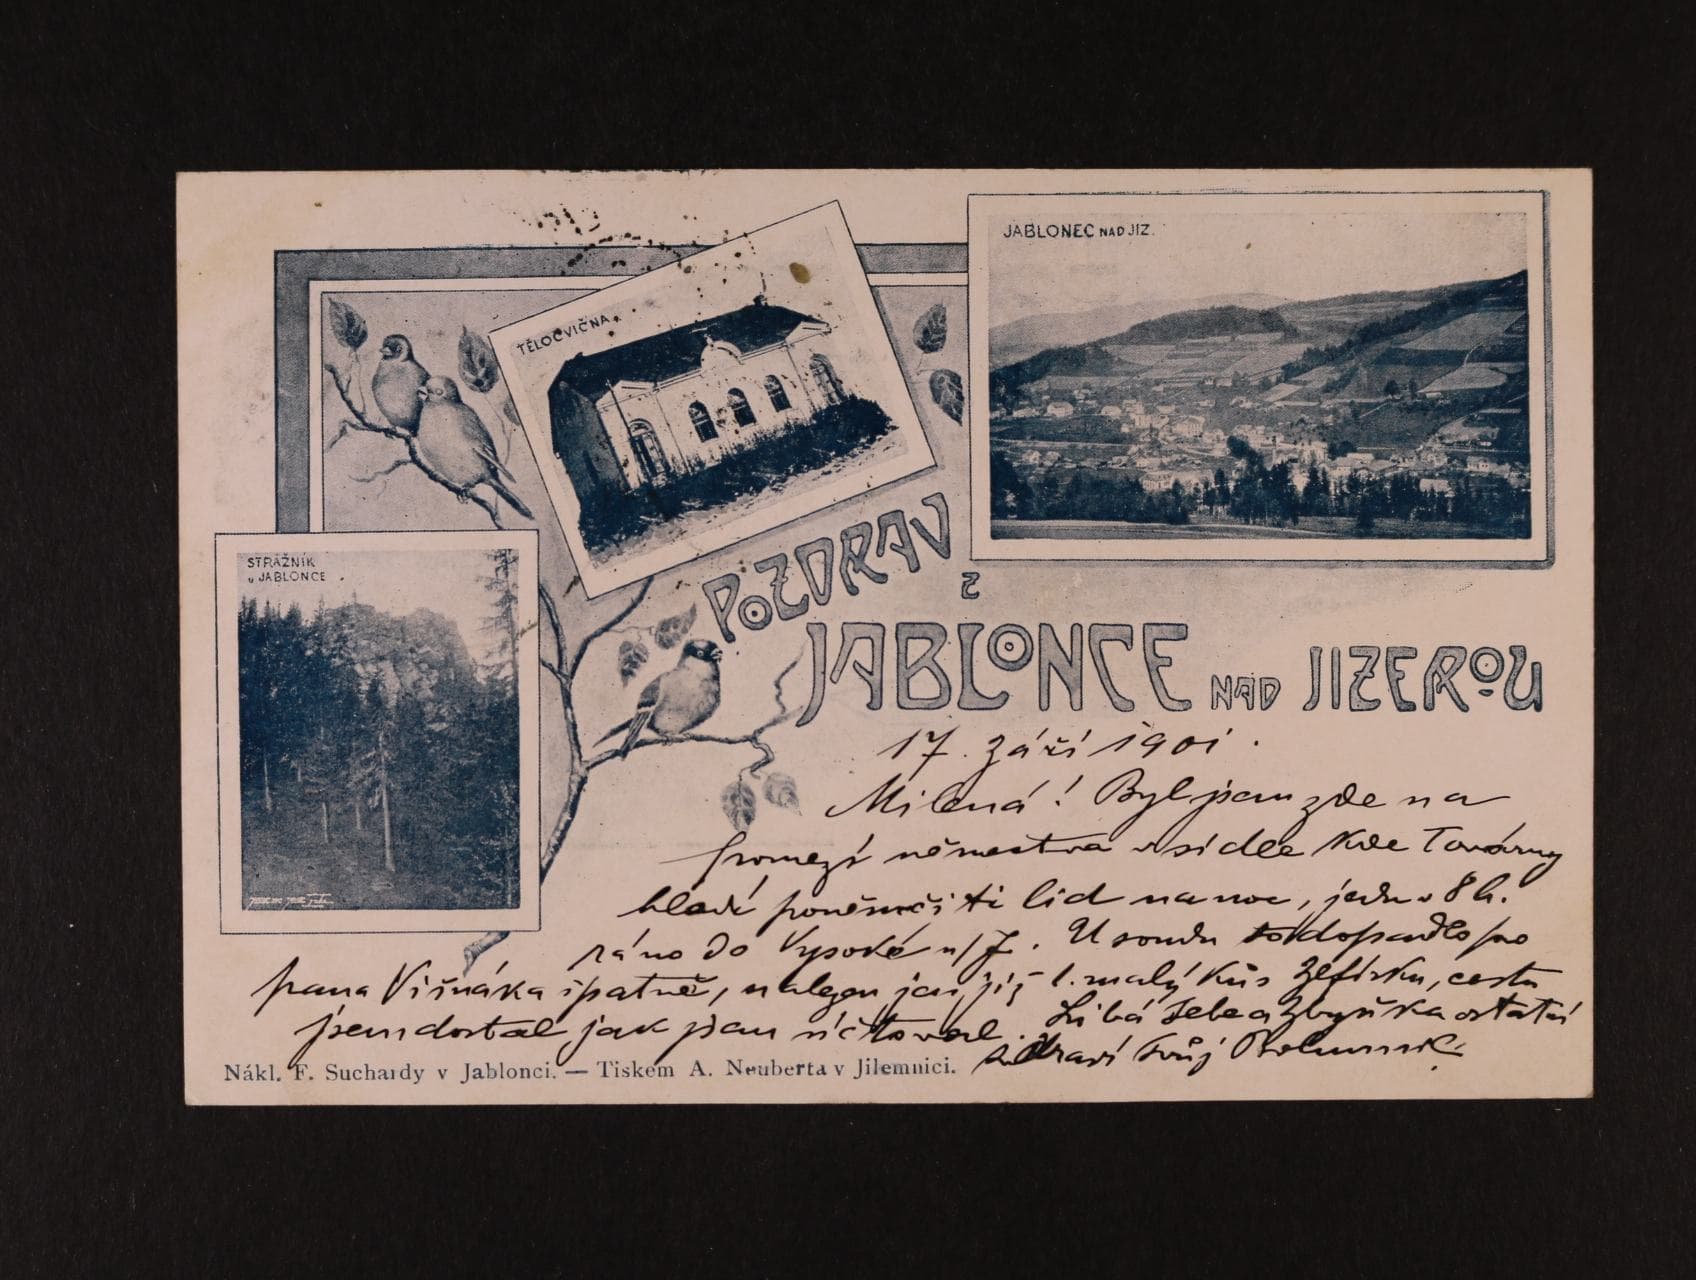 JABLONEC NAD JIZ.
TĚLOCVIČNA.
STRÁŽNÍK
u JABLONCE
POZDRAV
Z
JABLONCE NAD JIZEROU
17. září 1901.
Milená! Byl jsem zde na
pomezí němectva v sídle kde Továrny
hledí poněmčiti lid na noc, jedu v 8 h.
ráno do Vysoké n/J. U soudu to dopadlo pro
pana Višňáka špatně, nalezen jen již 1. malý kus Zefírku, cestu
jsem dostal jak jsem účtoval. Líbá Tebe a Zbyňka ostatní
zdraví Tvůj
Nákl. F. Suchardy v Jablonci. — Tiskem A. Neuberta v Jilemnici.